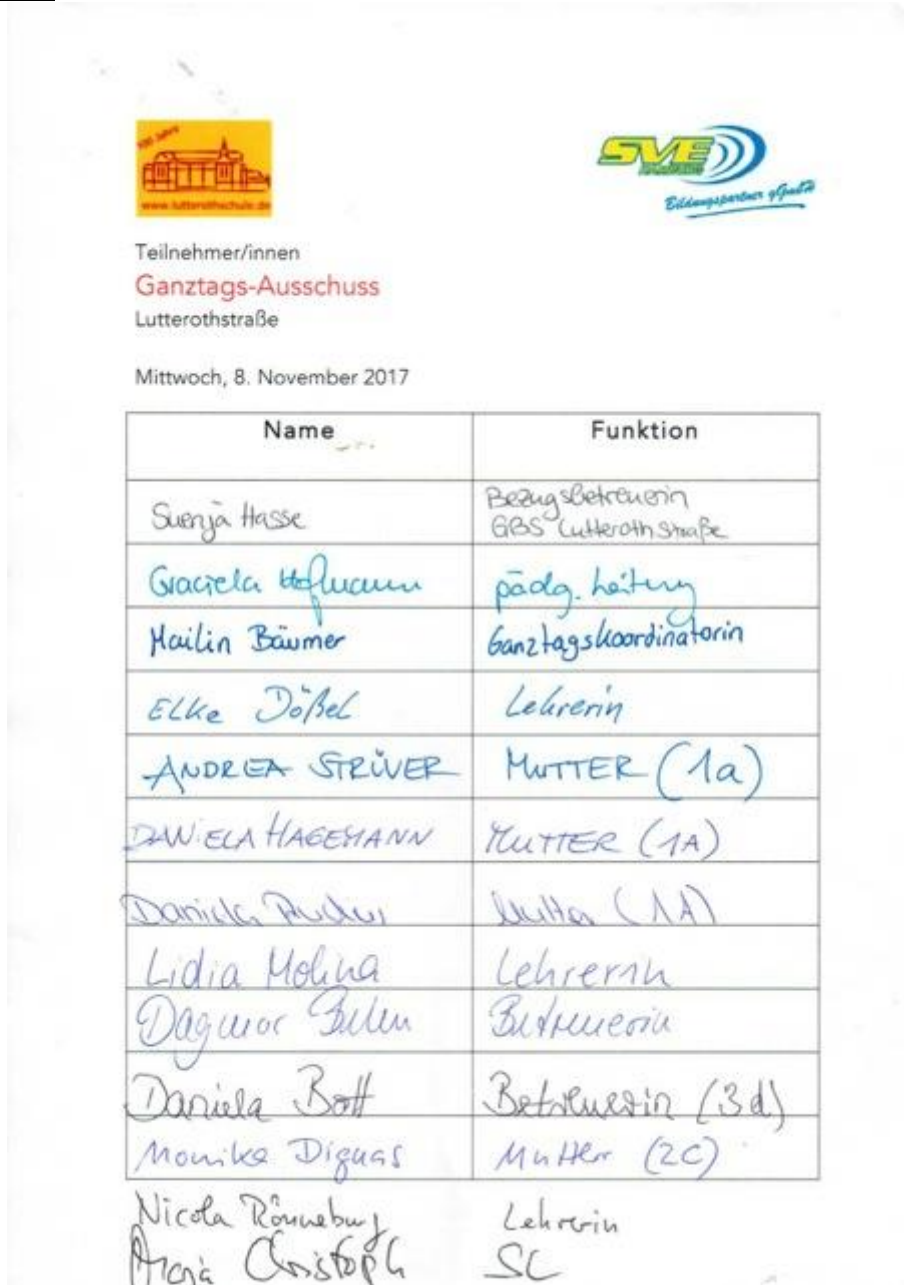 100 Jahre
www.lutterothschule.de
SVE
Bildungspartner gGmbH
Teilnehmer/innen
Ganztags-Ausschuss
Lutterothstraße
Mittwoch, 8. November 2017
Name Funktion
Svenja Hasse Bezugsbetreuerin
GBS Lutterothstraße
Graciela Hofmann pädg. Leitung
Mailin Bäumer Ganztagskoordinatorin
Elke Dößel Lehrerin
ANDREA STRÜVER MUTTER (1a)
DANIELA HAGEMANN MUTTER (1A)
Daniela Mutter (1A)
Lidia Molina Lehrerin
Dagmar Betreuerin
Daniela Bott Betreuerin (3d)
Monika Diguas Mutter (2C)
Nicola Rönneburg Lehrerin
Christoph SL